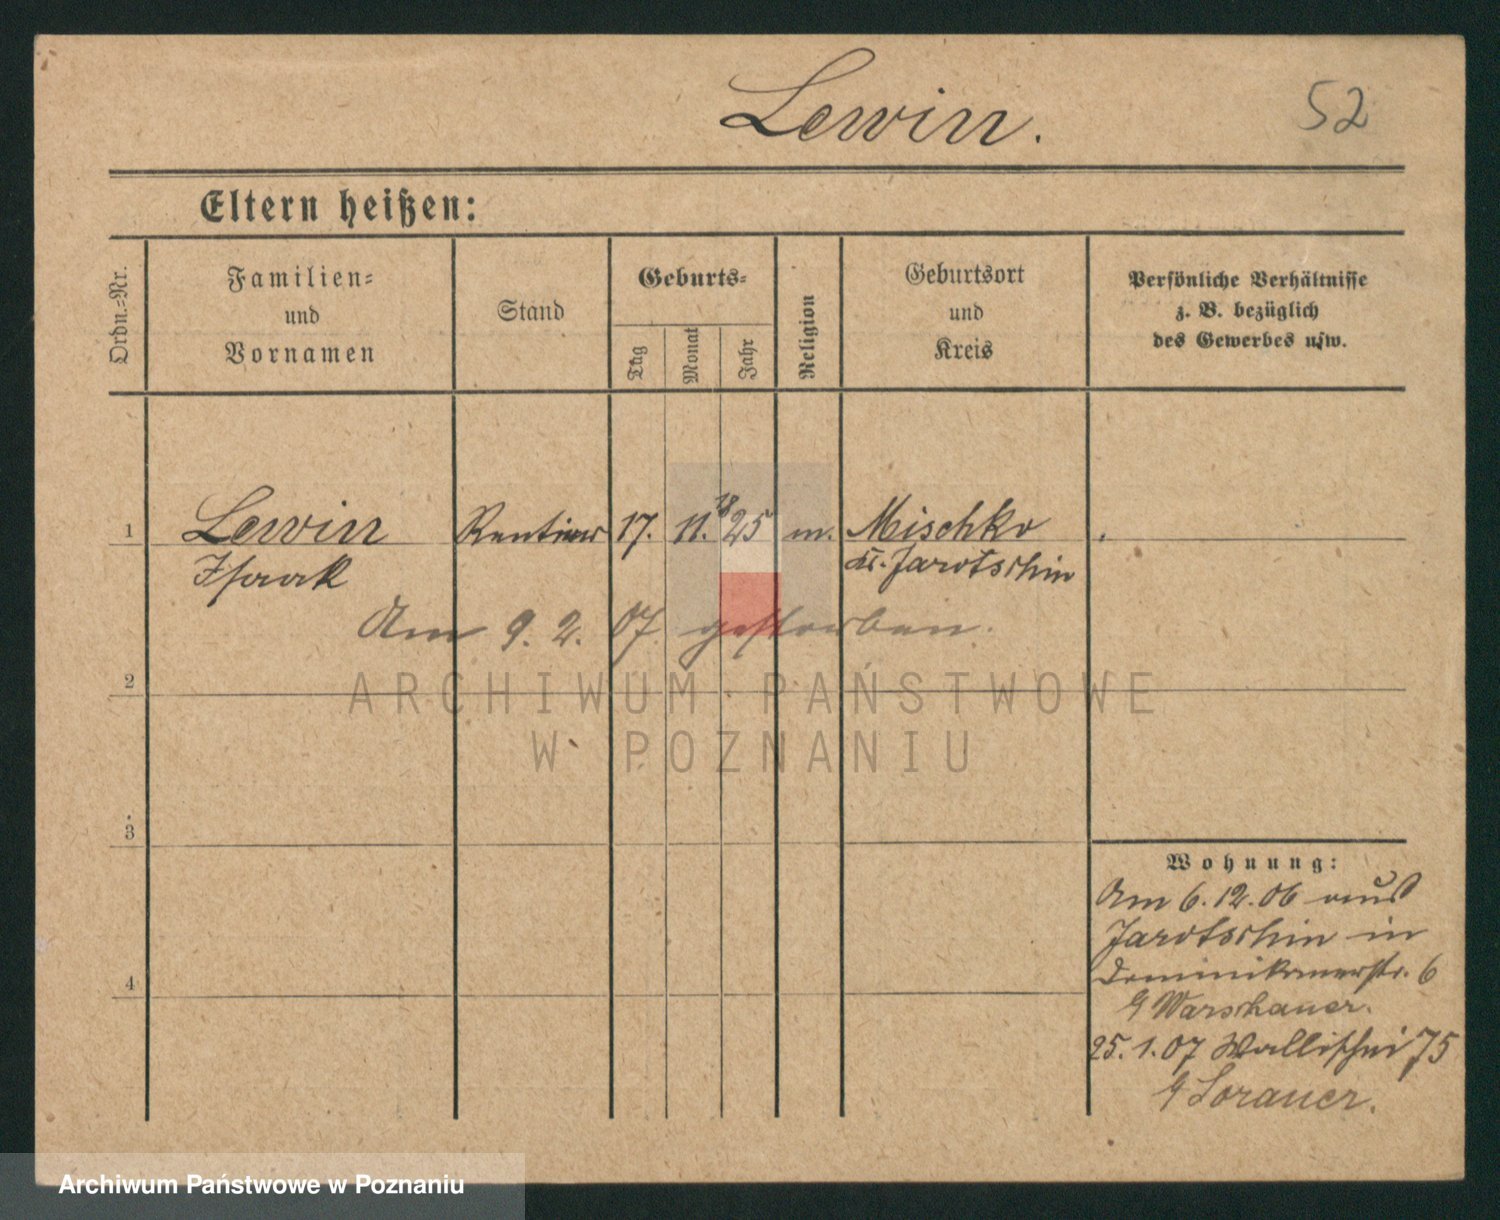 Lewin.
52
Eltern heißen:
Ordn.-Nr.
Familien-
und
Vornamen
Stand
Geburts-
Tag
Monat
Jahr
Religion
Geburtsort
und
Kreis
Persönliche Verhältnisse
z. B. bezüglich
des Gewerbes usw.
1
Lewin
Isaak
Rentier
17.
11.
1825
m.
Mischko
Kr. Jarotschin
Am 9. 2. 07. gestorben.
2
3
4
Wohnung:
Am 6. 12. 06 aus
Jarotschin in
Dominikanerstr. 6
Warschauer.
25. 1. 07 Wallischei 75
Sorauer.
ARCHIWUM PAŃSTWOWE
W POZNANIU
Archiwum Państwowe w Poznaniu